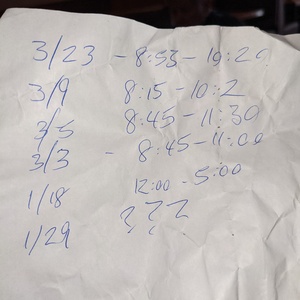 3/23 - 8:53 - 10:20
3/9 8:15 - 10:2
3/5 8:45 - 11:30
3/3 - 8:45 - 11:00
1/18 12:00 - 5:00
1/29 ? ? ?